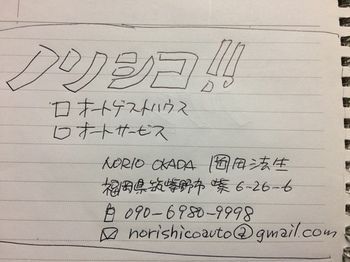 ノリシコ!!
□ オートゲストハウス
□ オートサービス
NORIO OKADA 岡田法生
福岡県筑紫野市 紫 6-26-6
090-6980-9998
norishicoauto@gmail.com